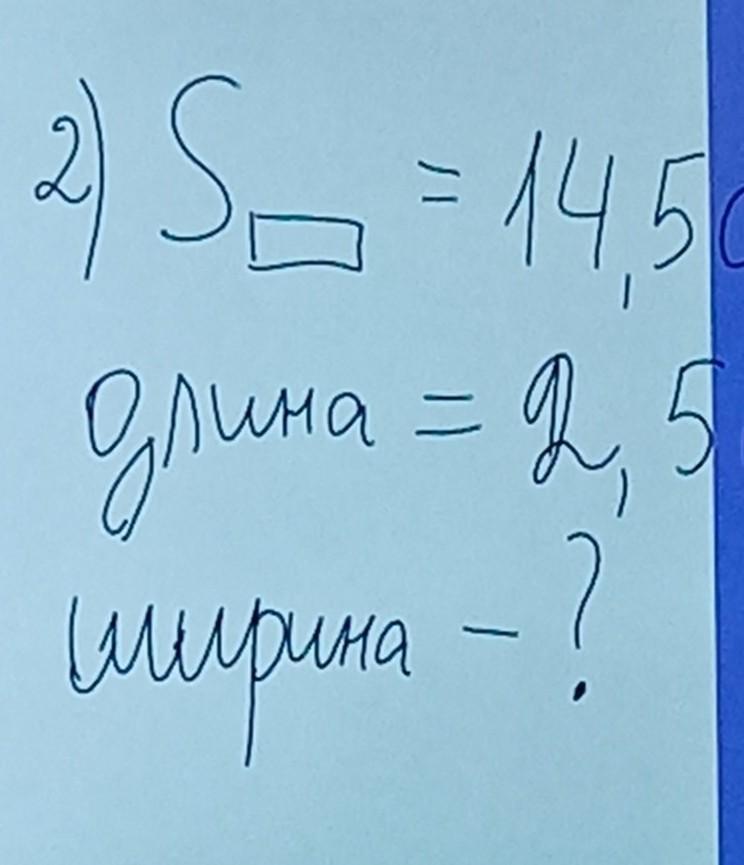 2) S▭ = 14,5
длина = 2,5
ширина - ?